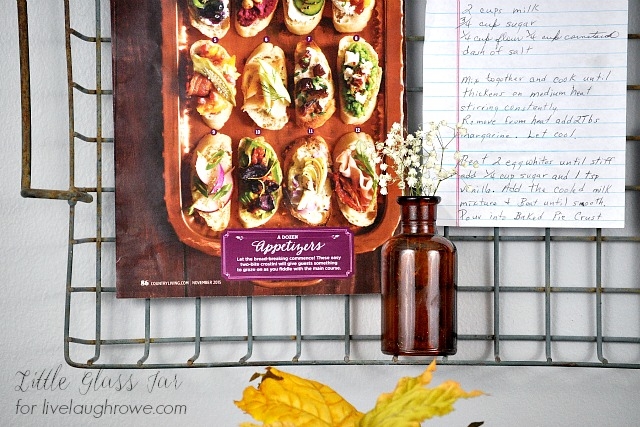 5
6
7
8
9
10
11
12
A DOZEN
Appetizers
Let the bread-breaking commence! These easy
two-bite crostini will give guests something
to graze on as you fiddle with the main course.
86 COUNTRYLIVING.COM | NOVEMBER 2015
2 cups milk
3/4 cup sugar
1/4 cup flour 1/4 cup cornstarch
dash of salt
Mix together and cook until
thickens on medium heat
stirring constantly.
Remove from heat add 2 Tbs
margarine. Let cool.
Beat 2 egg whites until stiff
add 1/4 cup sugar and 1 tsp
vanilla. Add the cooled milk
mixture & Beat until smooth.
Pour into Baked Pie Crust
Little Glass Jar
for livelaughrowe.com